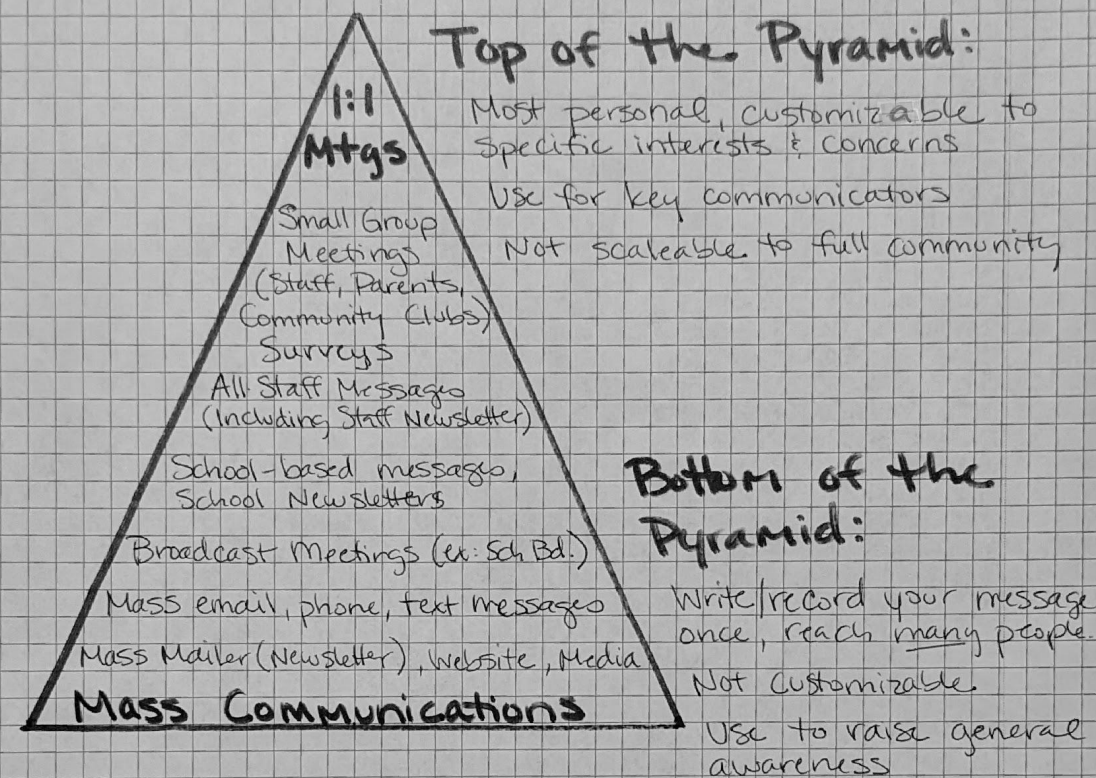 1:1
Mtgs
Small Group
Meetings
(Staff, Parents,
Community Clubs)
Surveys
All Staff Messages
(Including Staff Newsletter)
School-based messages,
School Newsletters
Broadcast Meetings (ex: Sch Bd.)
Mass email, phone, text messages
Mass Mailer (Newsletter), Website, Media
Mass Communications
Top of the Pyramid:
Most personal, customizable to
specific interests & concerns
Use for key communicators
Not scaleable to full community
Bottom of the
Pyramid:
Write/record your message
once, reach many people.
Not customizable
Use to raise general
awareness